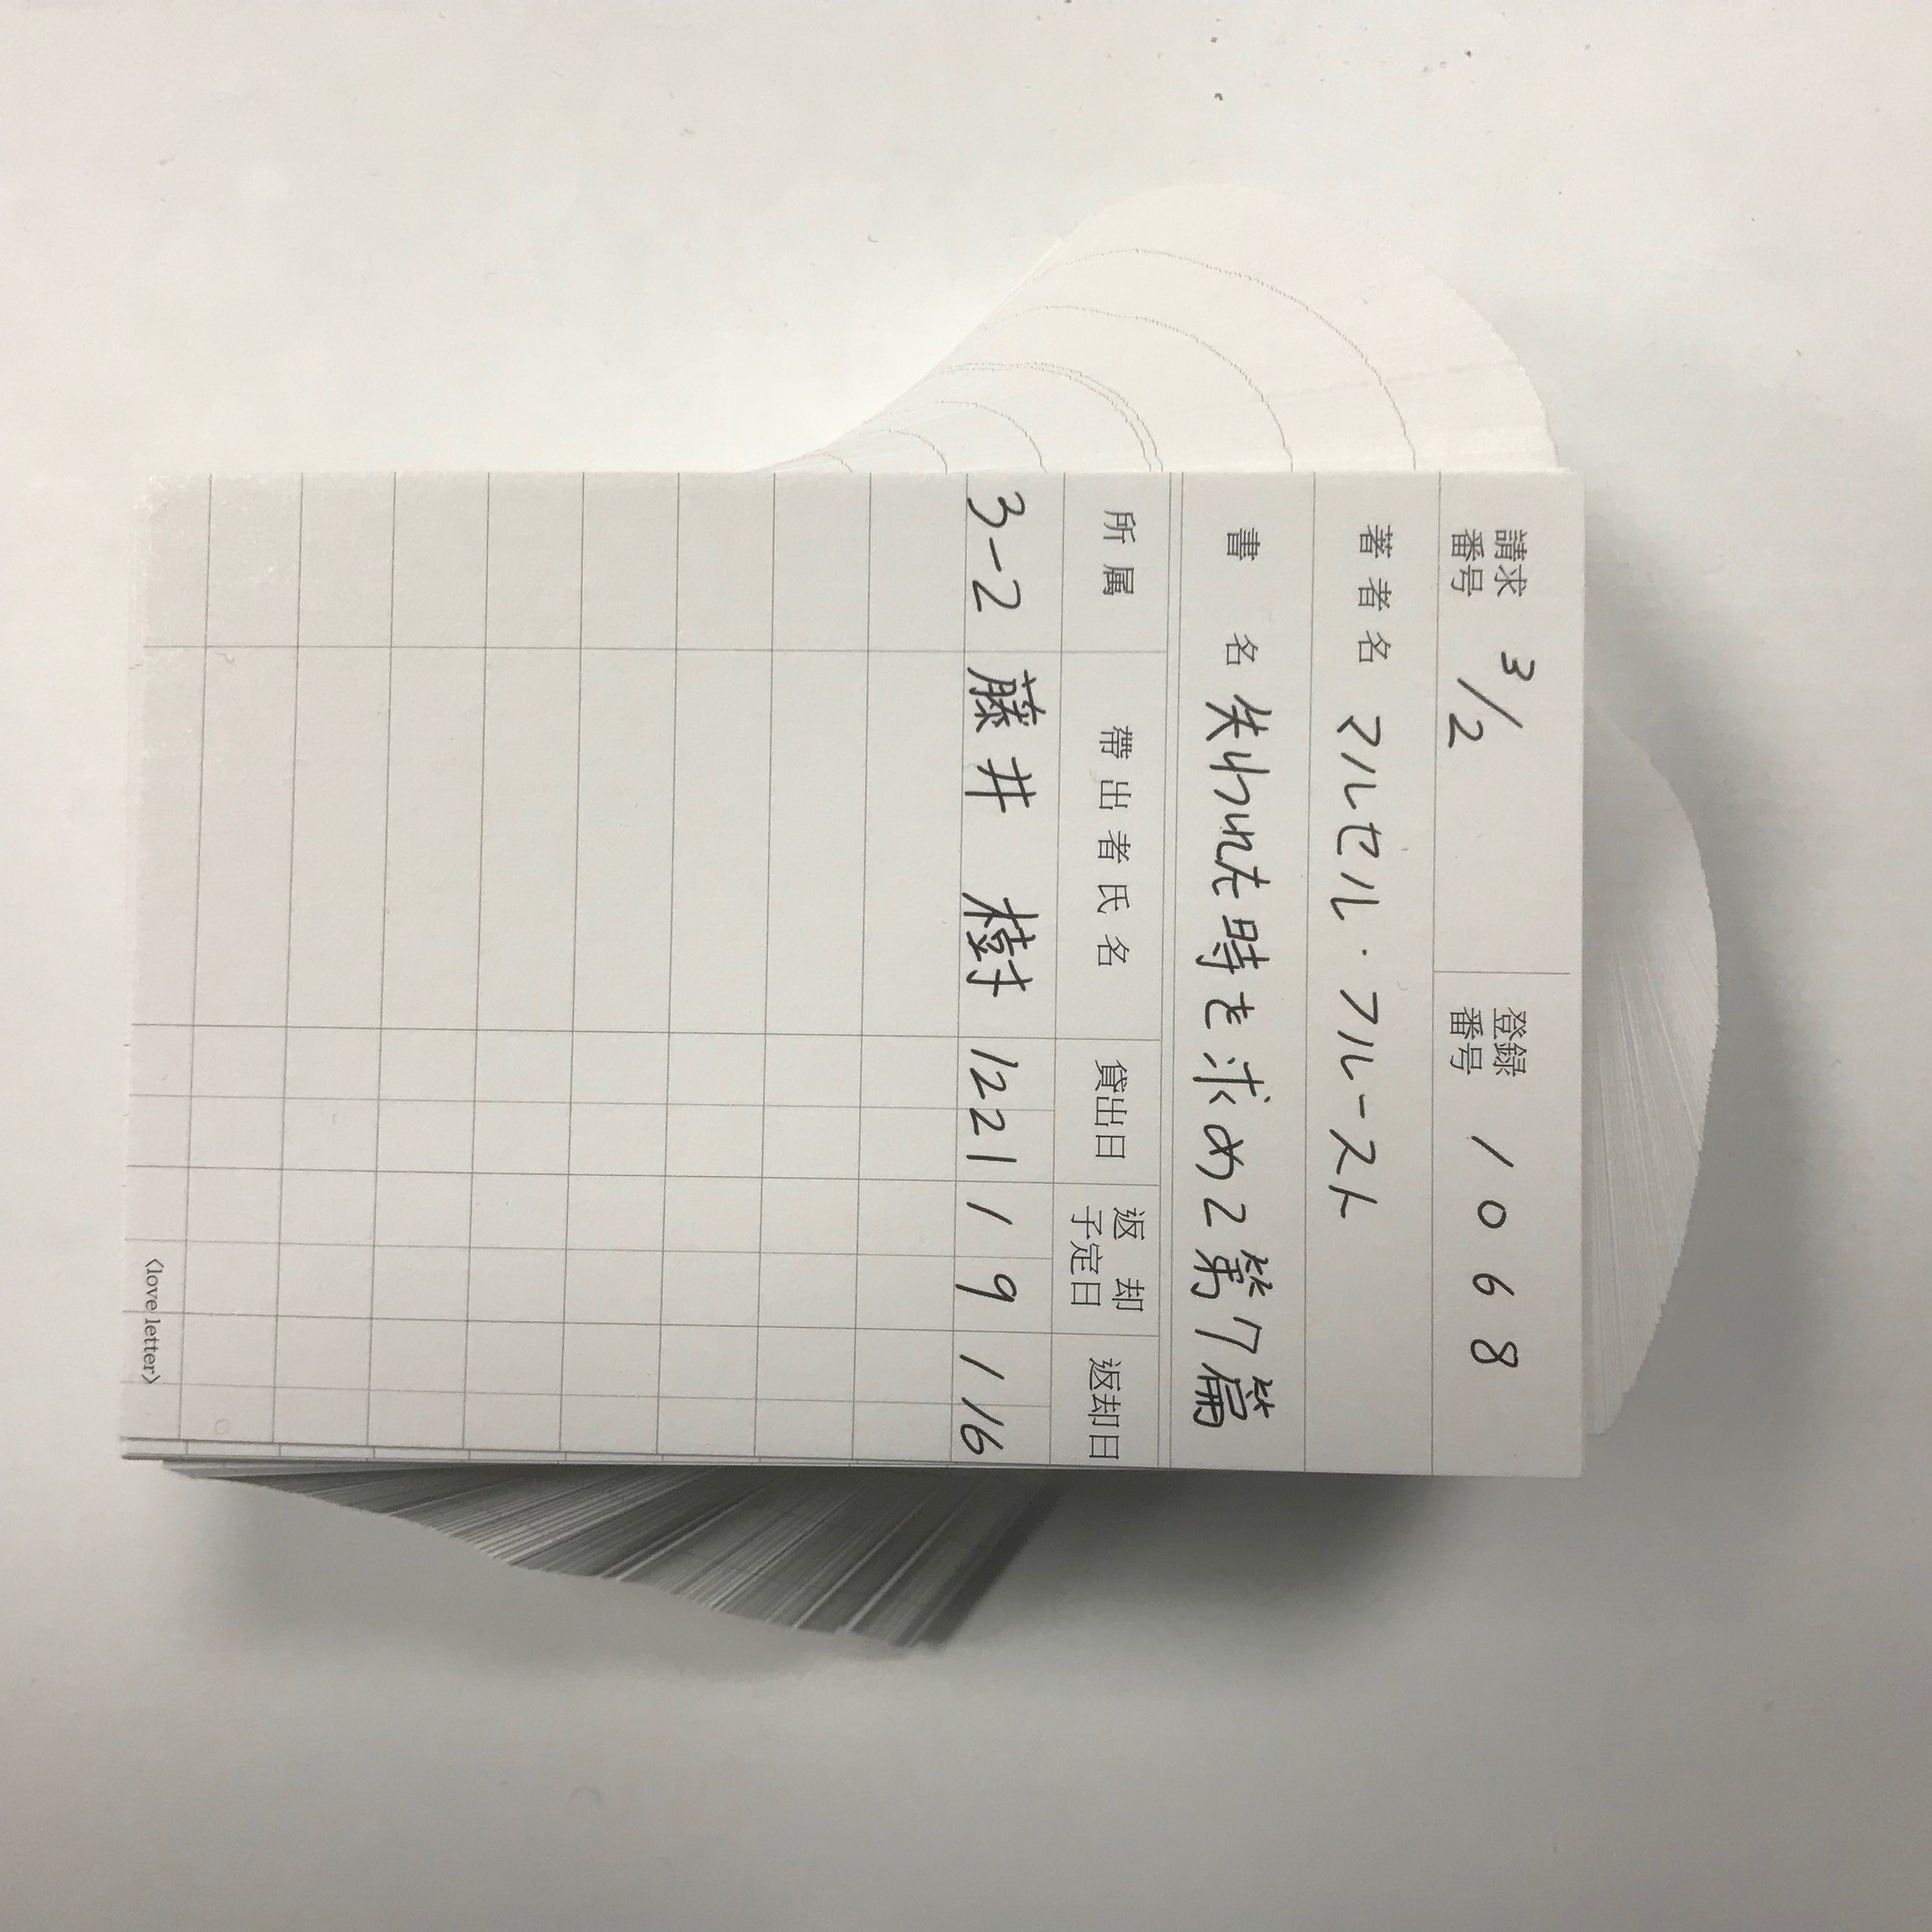 請求番号 3/2 登録番号 1068
著者名 マルセル・フルースト
書名 失われた時を求めて第7篇
所属 帯出者氏名 貸出日 返却予定日 返却日
3-2 藤井 樹 12 21 1 9 1 16
〈love letter〉